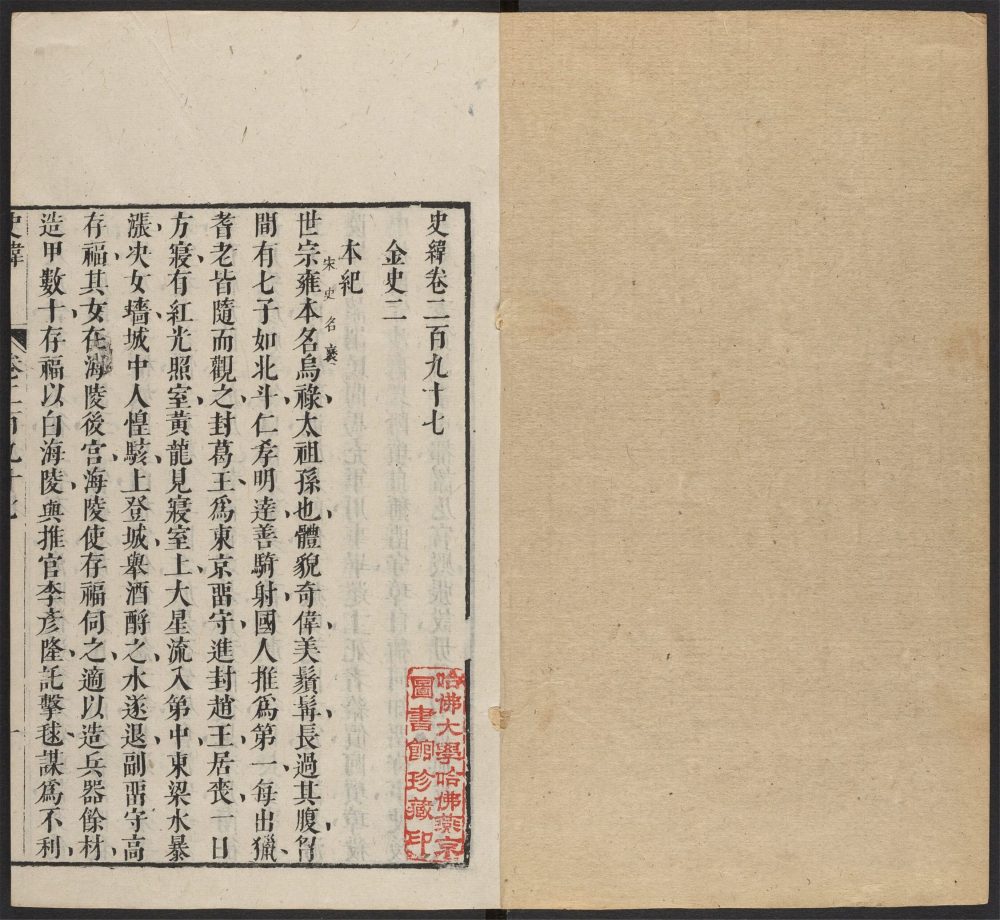 史緯卷二百九十七
金史二
本紀
世宗雍本名烏祿太祖孫也體貌奇偉美鬚髯長過其腹胷
宋史名襃
間有七子如北斗仁孝明達善騎射國人推爲第一每出獵
耆老皆隨而觀之封葛王爲東京畱守進封趙王居喪一日
方寢有紅光照室黃龍見寢室上大星流入第中東梁水暴
漲決女墻城中人惶駭上登城舉酒酹之水遂退副畱守高
存福其女在海陵後宮海陵使存福伺之適以造兵器餘材
造甲數十存福以白海陵與推官李彥隆託擊毬謀爲不利
史緯
卷二百九十七
一
哈佛大學哈佛燕京
圖書館珍藏印